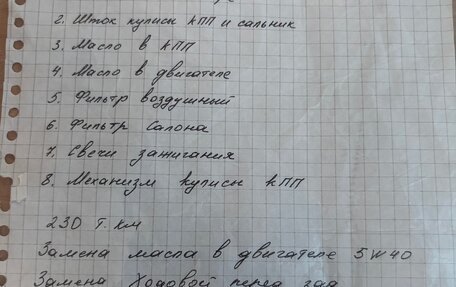 2. Шток кулисы КПП и сальник
3. Масло в КПП
4. Масло в двигателе
5. Фильтр воздушный
6. Фильтр Салона
7. Свечи зажигания
8. Механизм кулисы КПП
230 т. км
Замена масла в двигателе 5W40
Замена Ходовой перед зад